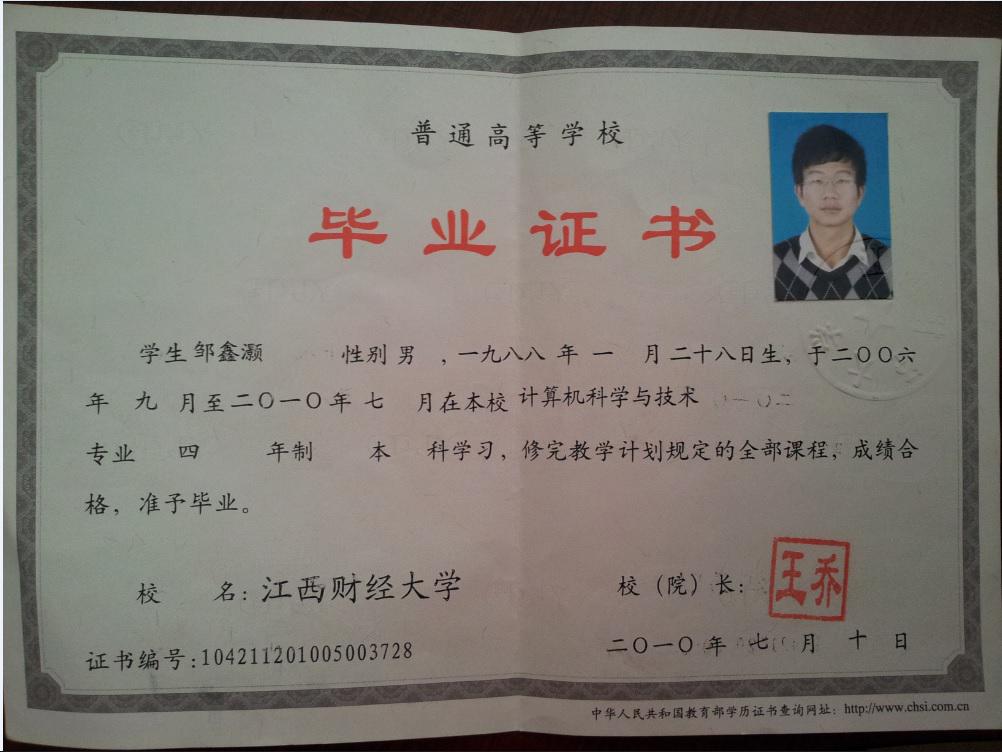 普通高等学校
毕业证书
学生 邹鑫灏 性别 男 ，一九八八 年 一 月 二十八日生，于二〇〇六
年 九 月至二〇一〇年 七 月在本校 计算机科学与技术
专业 四 年制 本 科学习，修完教学计划规定的全部课程，成绩合
格，准予毕业。
校 名：江西财经大学 校（院）长：王乔
证书编号：104211201005003728 二〇一〇 年 七 月 十 日
中华人民共和国教育部学历证书查询网址：http://www.chsi.com.cn